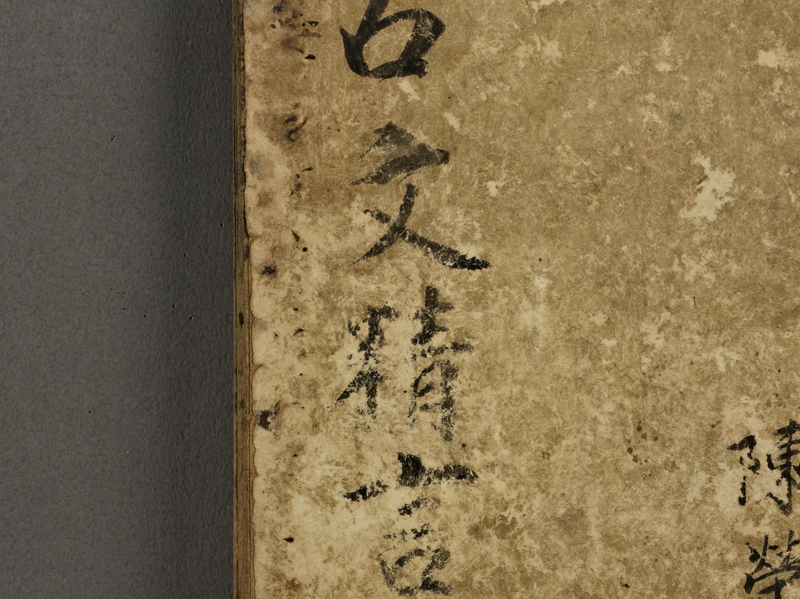 古文精言
陳榮